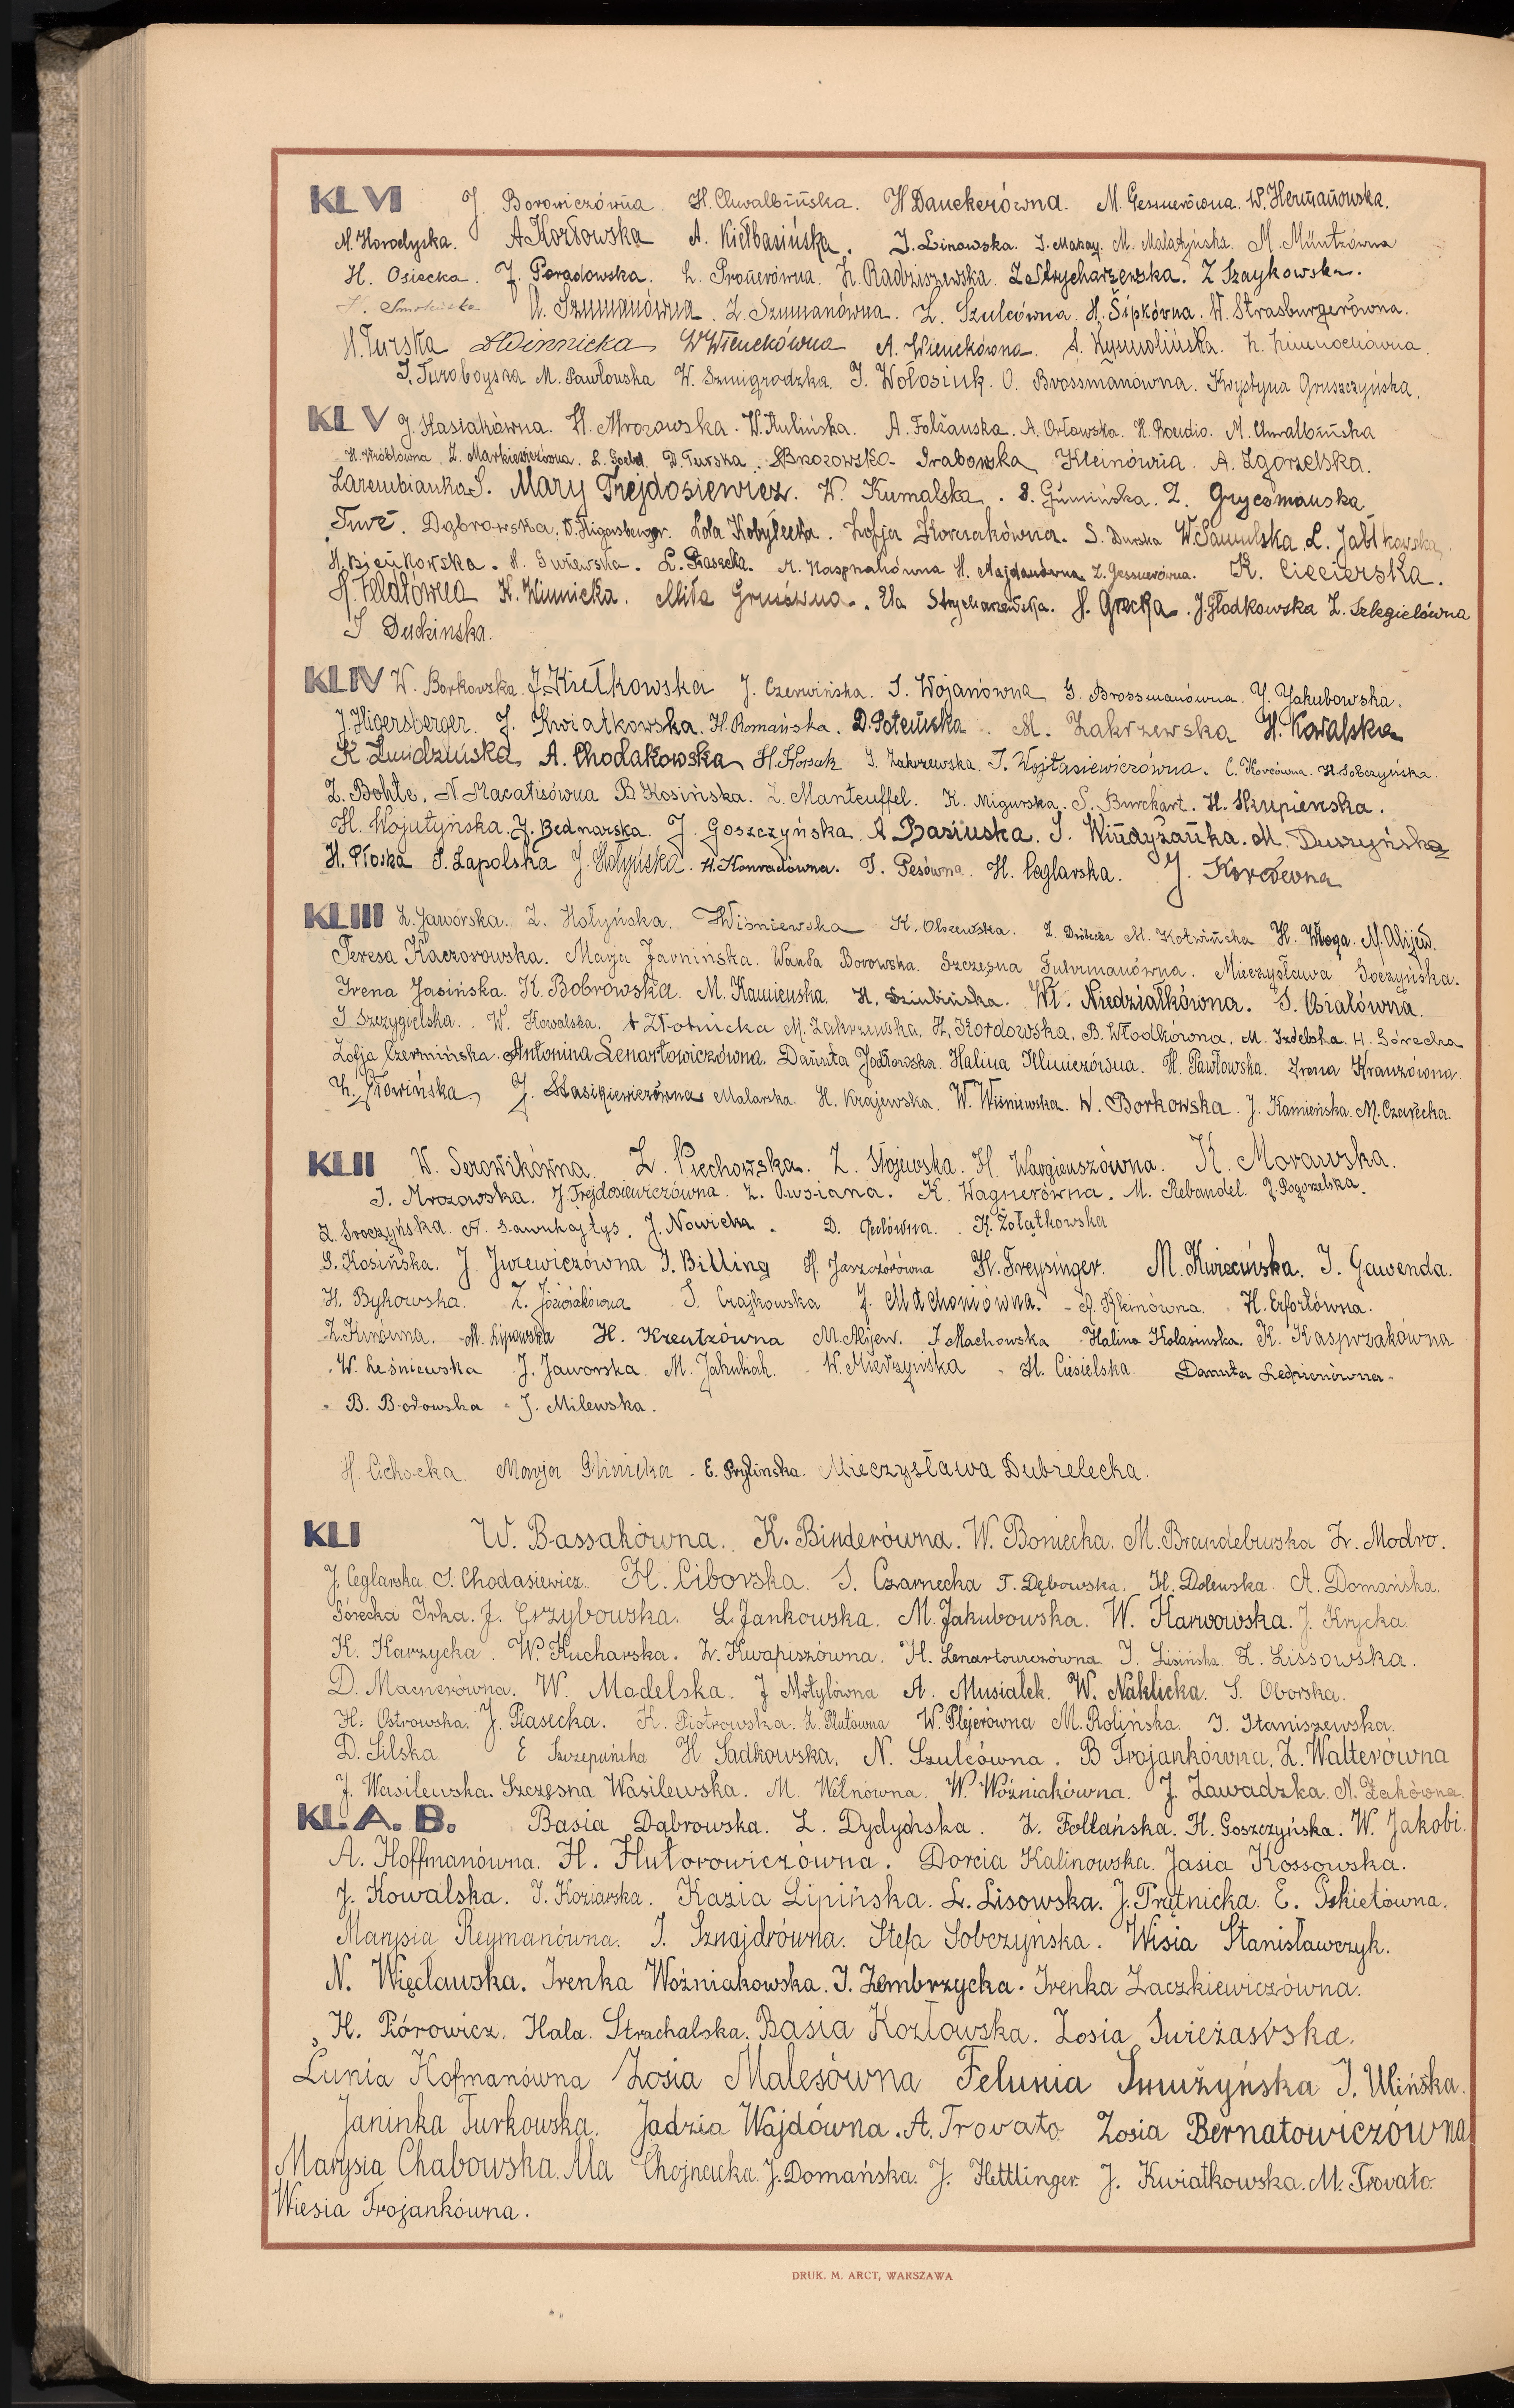 KL VI J. Borowiczówna. H. Chwalbińska. H Danekerówna. M. Gessnerówna. W. Hermanowska.
M. Horodyska. A Kozłowska A. Kiełbasińska. J. Linowska. J. Makay. M. Malatyńska. M. Müntzówna
H. Osiecka. J. Poradowska. L. Pronerówna. H. Radziszewska. Z Strycharzewska. Z Szaykowska.
A. Szumanówna. Z. Szumanówna. Z. Szulcówna. H. Šipkówna. W. Strasburgerówna.
H. Turska A Winnicka W Wienckówna A. Wienckówna. A. Wysmolińska.
J. Turoboyska M. Pawłowska W. Szmigrodzka. J. Wołosiuk. O. Brossmanówna. Krystyna Gruszczyńska.
KL V J. Stasiakówna. H. Mrozowska. W. Rulińska. A. Folżanska. A. Orłowska. H. Rondio. M. Chwalbińska
H. Wróblówna Z. Markiewiczówna. L. Goebel D. Turska. Brozowska Grabowska Kleinówna. A. Zgorzelska.
Zarembianka S. Mary Trejdosiewicz. W. Kumalska. S. Gumińska. Z.
Dąbrowska. W. Higersberger. Lola Kobyłecka. Zofja Korczakówna. S. Durska W. Samulska. L. Jabłkowska
H. Bieńkowska. L. Piasecka. A. Kasprzakówna H. Majdanówna Z. Gessnerówna. K. Ciecierska.
K. Winnicka. Miła Ela Strycharzewska. H. Grecka. J. Głodkowska Z. Szlegielówna
J Duckinska.
KL IV W. Borkowska. J. Kiełkowska J. Czerwińska. S. Wojanówna G. Brossmanówna. J. Jakubowska.
J. Higersberger. J. Kwiatkowska. H. Romańska. D. Poteńska. M. Zakrzewska H. Kowalska
K Zwidzińska A. Chodakowska H. Korsak J. Zakrzewska. J. Wojtasiewiczówna. C. Korcówna. H. Sobczyńska.
Z. Bohte. N. Macatisówna B. Kosińska. Z. Manteuffel. K. Migurska. S. Burckart. H. Skupienska.
H. Wojutyńska. J. Bednarska. J. Goszczyńska. A Basiuska. J. Windyżanka. M. Duszyńska
H. Płoska S. Zapolska J. Hołyńska. H. Konradówna. T. Pesówna. H. Ceglarska. J.
KL III Z. Jaworska. Z. Hołyńska. Wiśniewska K. Olszewska. Z. M. Kotwińska H. Włoga. M. Alijew.
Teresa Kaczorowska. Marja Jarnińska. Wanda Borowska. Szczęsna Fuhrmanówna. Mieczysława Goczyńska.
Irena Jasińska. K. Bobrowska. M. Kamienska. H. Sziubińska. Wł. Niedziałkówna. S. Osialówna.
J Szczygielska. W. Kowalska. A Złotnicka M. Zakrzewska. H. Kordowska. B. Włodkówna. M. Izdebska. H. Górecka
Zofja Czermińska. Antonina Lenartowiczówna. Danuta Jodłowska. Halina Klimczówna. H. Pawłowska. Irena Kranzówna
Z. Głowińska J. Stasikiewiczówna Malarska. H. Krajewska. W. Wiśniewska. W. Borkowska. J. Kamieńska. M. Czarnecka.
KL II W. Serowikówna. Z. Piechowska. Z. Stojewska. H. Wargieuszówna. K. Morawska.
J. Mrozowska. J. Trejdosiewiczówna. Z. Owsiana. K. Wagnerówna. M. Rebandel. J. Pogorzelska.
Z. Sroczyńska. A. Sawuhajtys. J. Nowicka. D. Gedówna. K. Żołątkowska
S. Kosińska. J. Jurewiczówna J. Billing H. Jaszczórówna H. Freysinger. M. Kwiecińska. J. Gawenda.
H. Bykowska. Z. Jóźwiakówna S. Czajkowska J. Machoniówna. A. Kleinówna. H. Erfortówna.
Z. Kunówna. M. Lipowska H. Kreutzówna M. Alijew. J. Machowska Halina Kolasinska. K. Kasprzakówna
W. Leśniewska J. Jaworska. M. Jakubiak. W. Mierzyńska H. Ciesielska. Danuta Ledpionówna
B. Bodowska J. Milewska.
H. Cichocka Marja Glinicka. E. Prylinska. Mieczysława Dubielecka.
KL I W. Bassakówna. K. Binderówna. W. Boniecka. M. Brandeburska Z. Modro.
J. Ceglarska S. Chodasiewicz. H. Ciborska. S. Czarnecka T. Dębowska. H. Dolewska. A. Domańska.
Górecka Irka. J. Grzybowska. L. Jankowska. M. Jakubowska. W. Karwowska. J. Krycka
K. Karzycka. W. Kucharska. Z. Kwapiszówna. H. Lenartowiczówna. J. Lisińska Z. Lissowska.
D. Macnerówna. W. Madelska. J Motylówna A. Musiałek. W. Naklicka. S. Oborska.
H. Ostrowska. J. Piasecka. K. Piotrowska. Z. Plutówna W. Plejerówna M. Rolińska. J. Staniszewska.
D. Silska E Szczepańska H Sadkowska. N. Szulcówna. B Trojankówna. Z. Walterówna
J. Wasilewska. Szczęsna Wasilewska. M. Wełnówna. W. Woźniakówna. J. Zawadzka. N. Żakówna.
KL. A. B. Basia Dąbrowska. L. Dydyńska. Z. Foltańska. H. Goszczyńska. W. Jakobi.
A. Hoffmanówna. H. Hutorowiczówna. Dorcia Kalinowska. Jasia Kossowska.
J. Kowalska. J. Koziarska. Kazia Lipińska. L. Lisowska. J. Prętnicka. E. Pskietówna.
Marysia Reymanówna. J. Sznajdrówna. Stefa Sobczyńska. Wisia Stanisławczyk.
N. Więcławska. Irenka Woźniakowska. J. Zembrzycka. Irenka Zaczkiewiczówna.
H. Piórowicz. Hala. Strachalska. Basia Kozłowska. Zosia Świeżawska.
Lunia Hofmanówna Zosia Malesówna Felunia Smużyńska J. Ulińska.
Janinka Turkowska. Jadzia Wajdówna. A. Trovato Zosia Bernatowiczówna
Marysia Chabowska. Ala Chojnacka. J. Domańska. J. Hettlinger. J. Kwiatkowska. M. Trovato.
Wiesia Trojankówna.
DRUK. M. ARCT, WARSZAWA